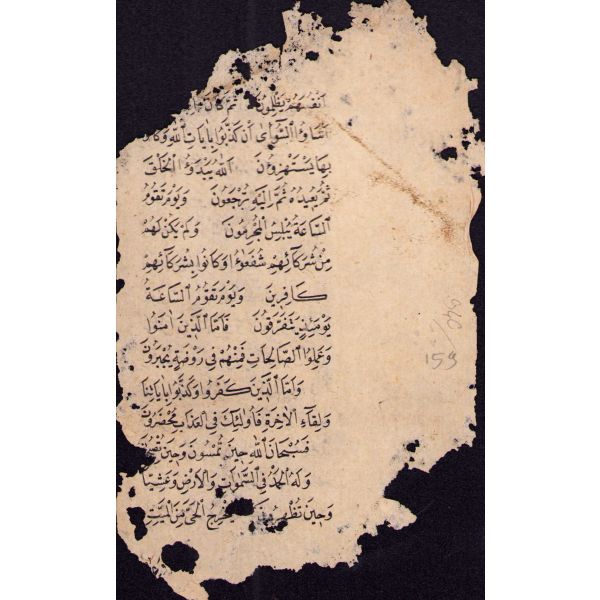 انفسهم يظلمون ثم كان
اساؤا السوأى ان كذبوا بايات الله وكانوا
بها يستهزون الله يبدؤ الخلق
ثم يعيده ثم اليه ترجعون ويوم تقوم
الساعة يبلس المجرمون ولم يكن لهم
من شركائهم شفعاؤا وكانوا بشركائهم
كافرين ويوم تقوم الساعة
يومئذ يتفرقون فاما الذين امنوا
وعملوا الصالحات فهم فى روضة يحبرون
واما الذين كفروا وكذبوا باياتنا
ولقاء الاخرة فاولئك فى العذاب محضرون
فسبحان الله حين تمسون وحين
وله الحمد فى السموات والارض وعشيا
وحين تظهرون يخرج الحى من الميت
159